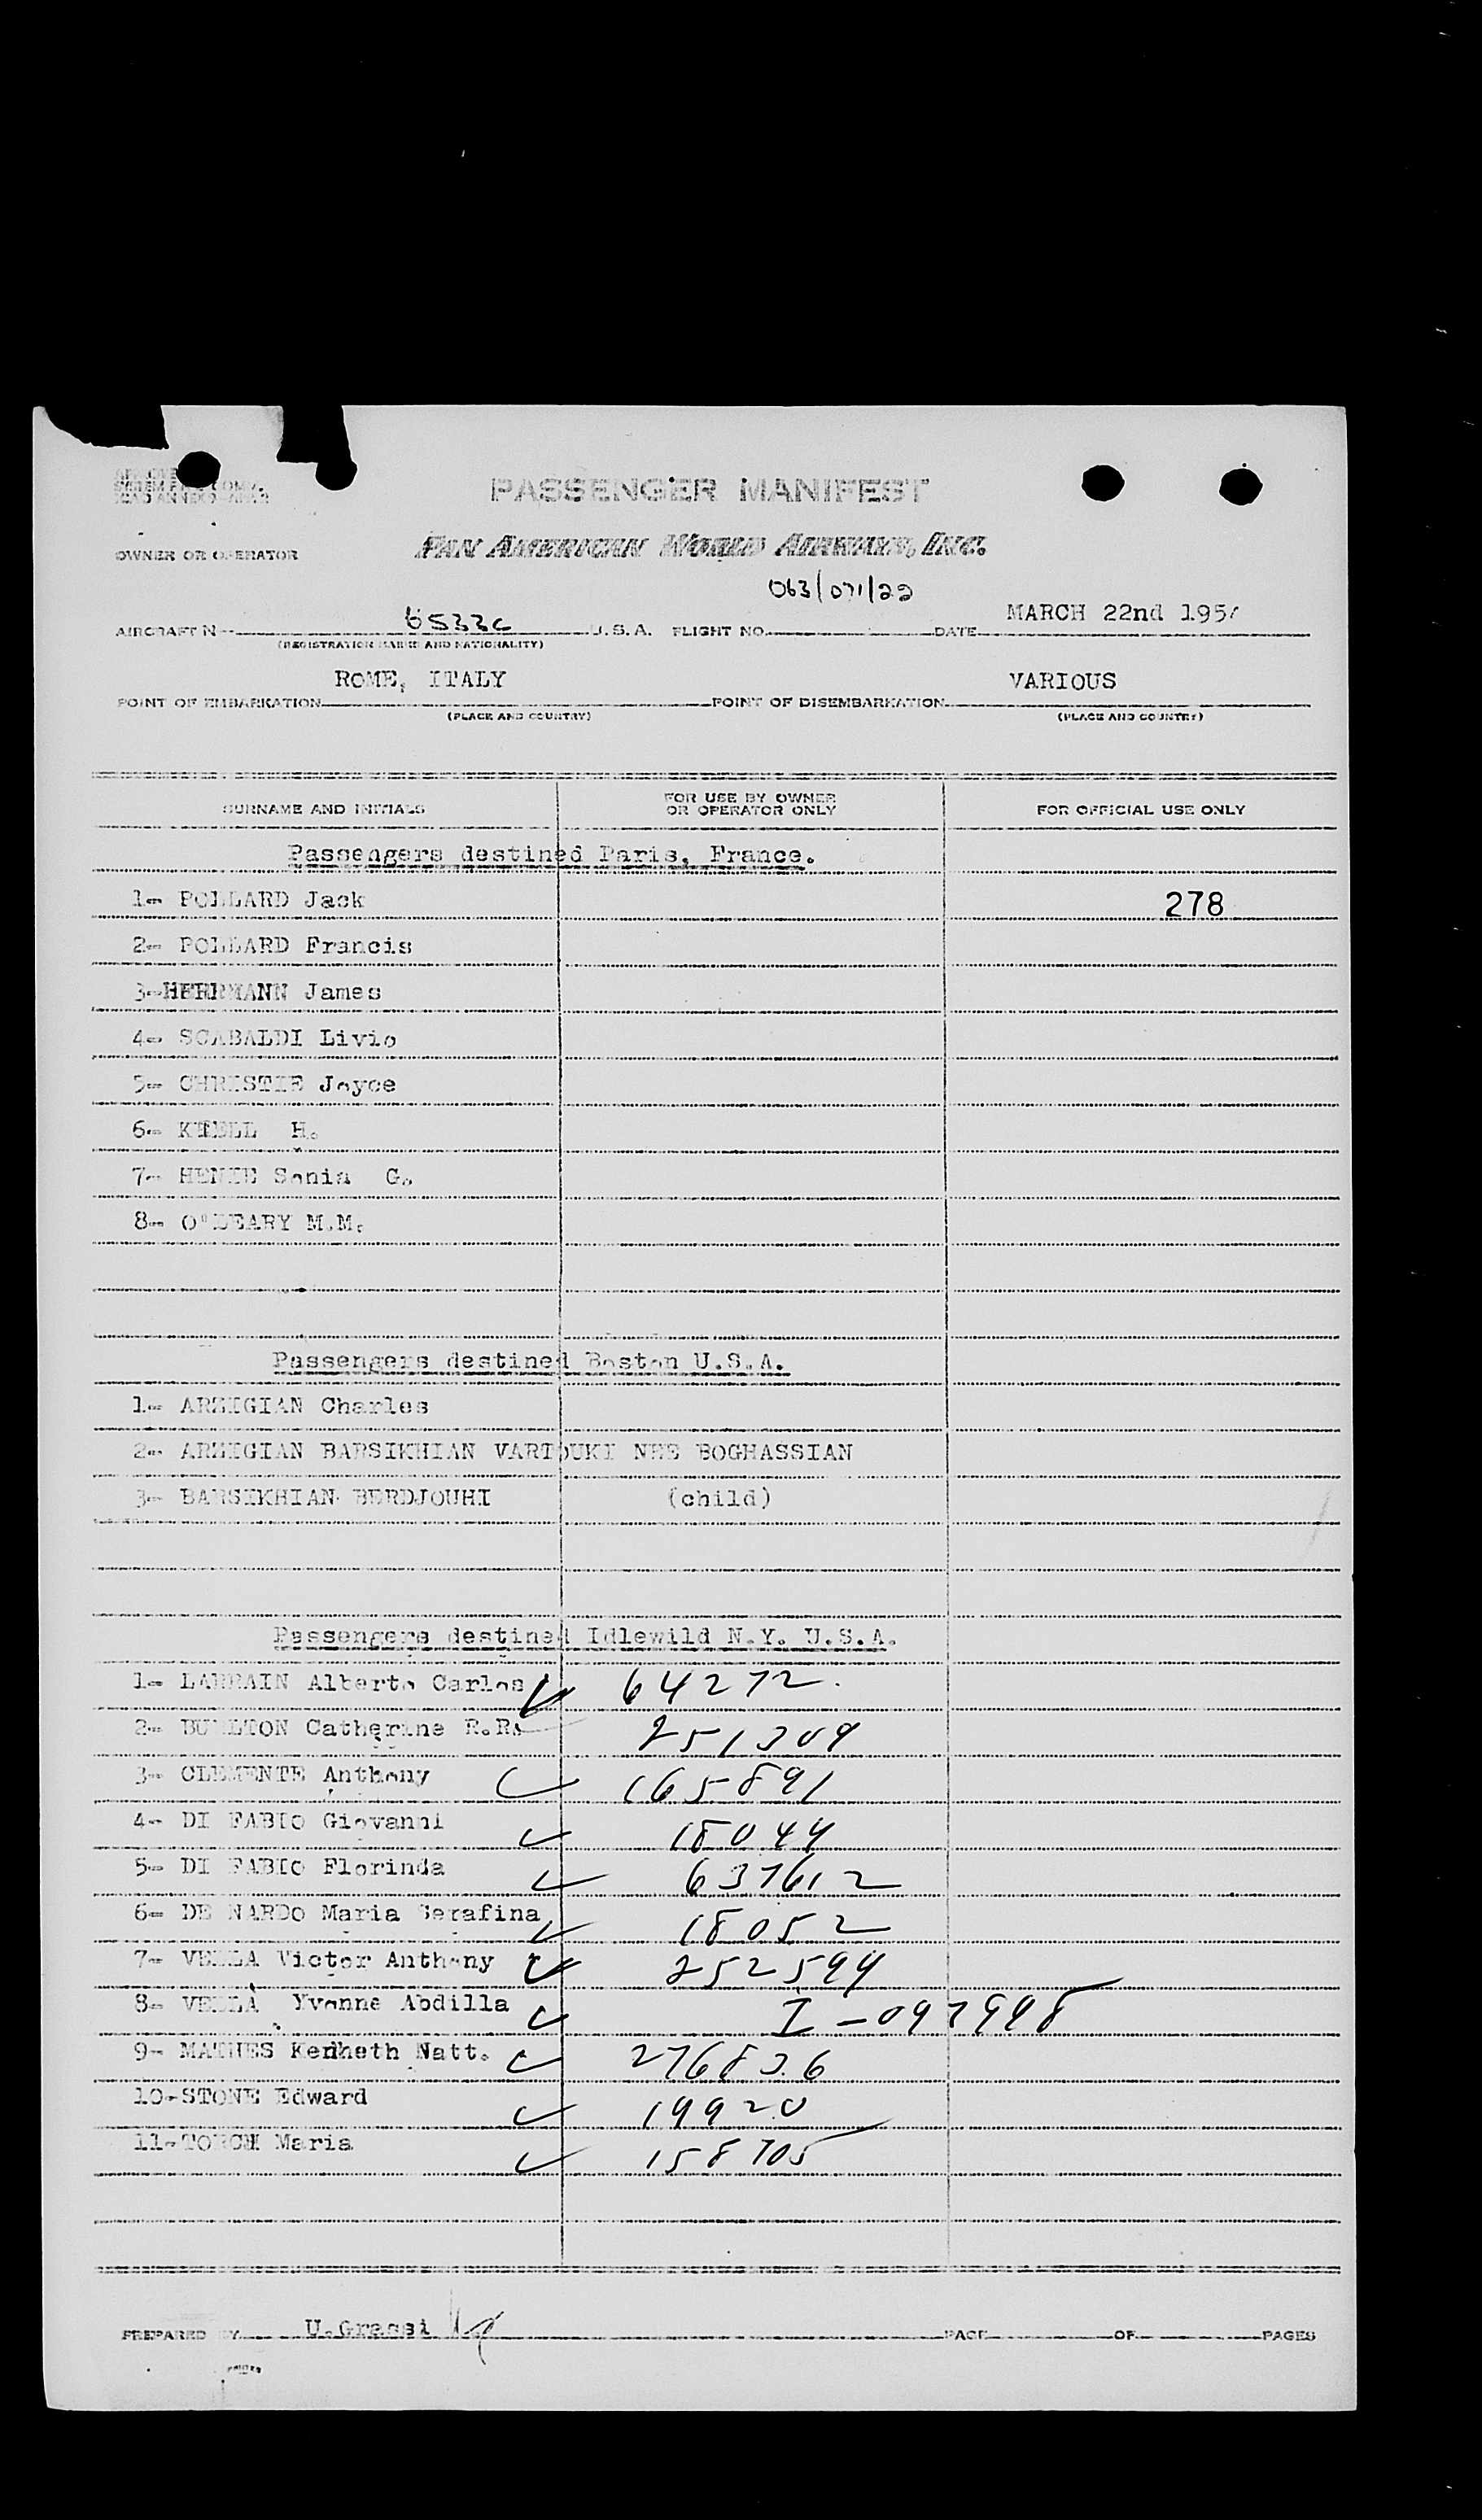 PASSENGER MANIFEST
OWNER OR OPERATOR PAN AMERICAN WORLD AIRWAYS, INC.
063/071/22
AIRCRAFT N 6533C U.S.A. FLIGHT NO. DATE MARCH 22nd 195
(REGISTRATION MARKS AND NATIONALITY)
ROME, ITALY VARIOUS
POINT OF EMBARKATION POINT OF DISEMBARKATION
(PLACE AND COUNTRY) (PLACE AND COUNTRY)
SURNAME AND INITIALS FOR USE BY OWNER OR OPERATOR ONLY FOR OFFICIAL USE ONLY
Passengers destined Paris, France.
1- POLLARD Jack 278
2- POLLARD Francis
3-HERRMANN James
4- SCABALDI Livio
5- CHRISTIE Joyce
6- KTELL H.
7- HENIE Sonia G.
8- O'LEARY M.M.
Passengers destined Boston U.S.A.
1- ARZIGIAN Charles
2- ARZIGIAN BARSIKHIAN VARTOUKI NEE BOGHASSIAN
3- BARSIKHIAN BERDJOUHI (child)
Passengers destined Idlewild N.Y. U.S.A.
1- LARRAIN Alberto Carlos 64272.
2- Catherine R.R. 251309
3- CLEMENTE Anthony 165891
4- DI FABIO Giovanni 18044
5- DI FABIO Florinda 637612
6- DE NARDO Maria Serafina 18052
7- VELLA Victor Anthony 252594
8- VELLA Yvonne Abdilla I-097998
9- MATHES Kenneth Natt. 276836
10-STONE Edward 19920
11-TORCH Maria 158705
PREPARED BY U.Grassi PAGE OF PAGES